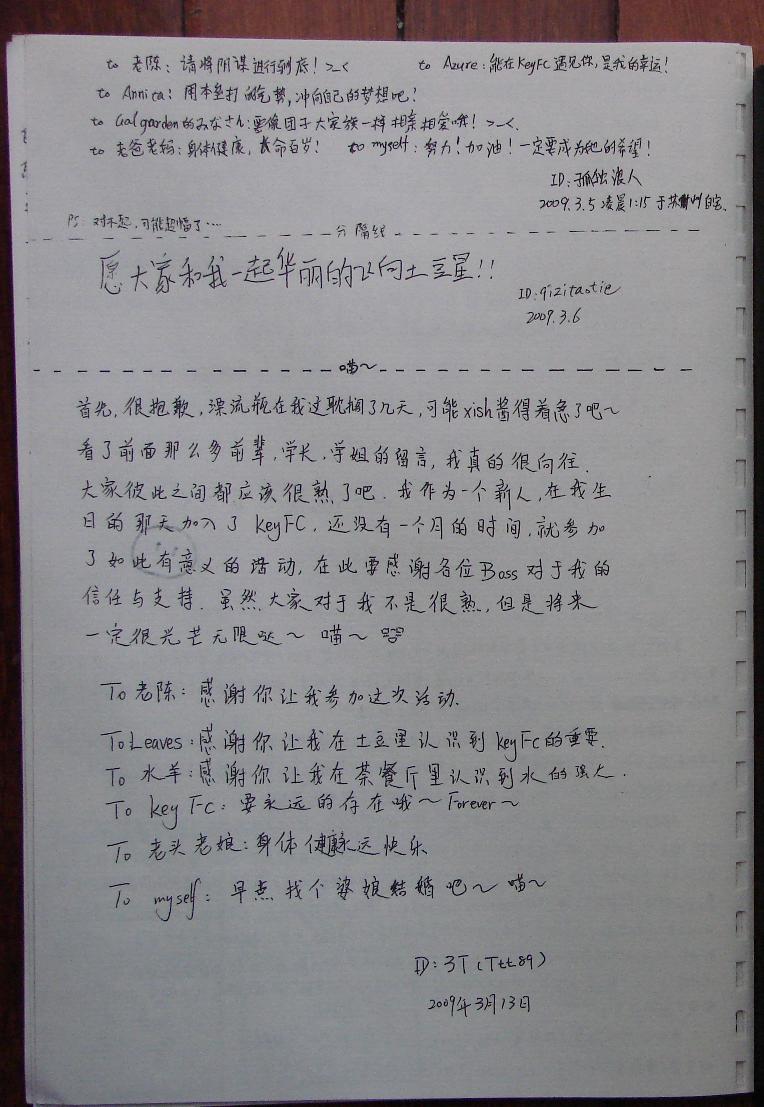 to 老陈：请将阴谋进行到底！>_<　to Azure：能在KeyFC遇见你，是我的幸运！
to Annita：用本垒打的气势，冲向自己的梦想吧！
to Galgarden的みなさん：要像团子大家族一样相亲相爱哦！>_<
to 老爸老妈：身体健康，长命百岁！　to myself：努力！加油！一定要成为她的希望！
ID：孤独浪人
2009.3.5 凌晨1:15 于苏州自宅
PS：对不起，可能超幅了…
分隔线
愿大家和我一起华丽的飞向土豆星！！
ID：qizitaotie
2009.3.6
喵～
首先，很抱歉，漂流瓶在我这耽搁了几天，可能xish酱得着急了吧～
看了前面那么多前辈，学长，学姐的留言，我真的很向往．
大家彼此之间都应该很熟了吧．我作为一个新人，在我生
日的那天加入了KeyFC，还没有一个月的时间，就参加
了如此有意义的活动，在此要感谢各位Boss对于我的
信任与支持．虽然，大家对于我不是很熟，但是将来
一定很光芒无限哒～　喵～
To 老陈：感谢你让我参加这次活动．
To Leaves：感谢你让我在土豆里认识到keyFc的重要．
To 水羊：感谢你让我在茶餐厅里认识到水的强大．
To key Fc：要永远的存在哦～Forever～
To 老头老娘：身体健康永远快乐
To myself：早点找个婆娘结婚吧～　喵～
ID：3T（Ttt89）
2009年3月13日